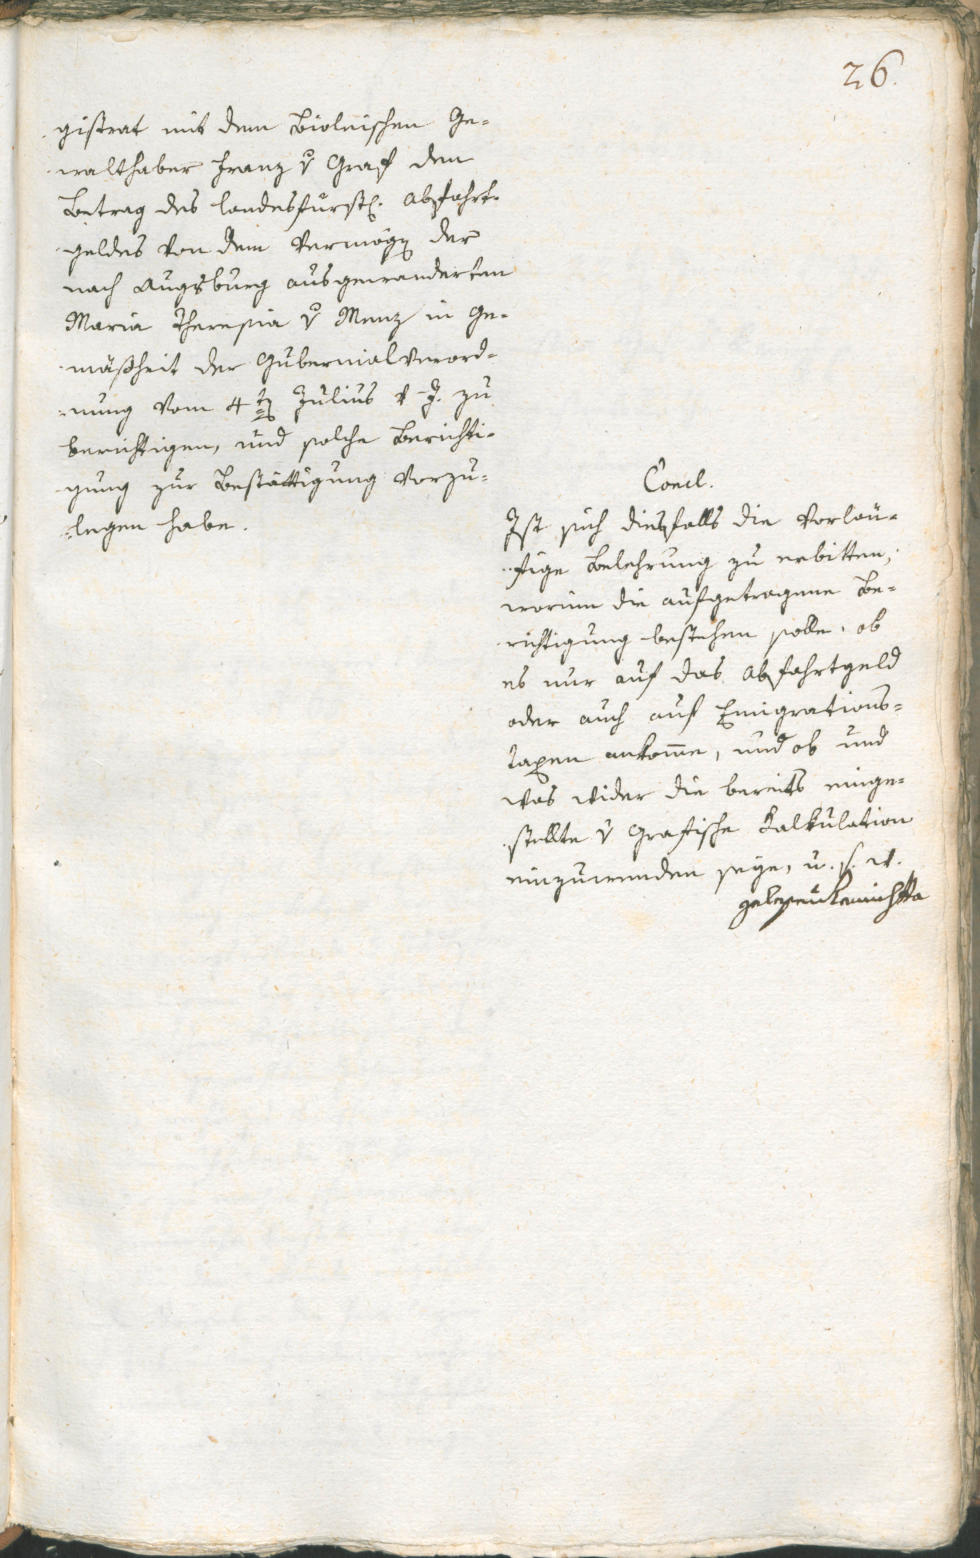 26.
gistrat mit dem Biolnischen Ge-
walthaber Franz v Graf den
Betrag des landesfürstl. Abfahrt-
geldes von dem Vermögen der
nach Augsburg ausgewanderten
Maria Theresia v Menz in Ge-
mäßheit der Gubernialverord-
nung vom 4ten Julius v. J. zu
berichtigen, und solche Berichti-
gung zur Bestättigung vorzu-
legen habe.
Concl.
Ist sich diesfalls die vorläu-
fige Belehrung zu erbitten,
worinn die aufgetragene Be-
richtigung bestehen solle, ob
es nur auf das Abfahrtgeld
oder auch auf Emigrations-
taxen ankom̄e, und ob und
was wider die bereits einge-
stellte v Grafische Kalkulation
einzuwenden seye, u. s. w.